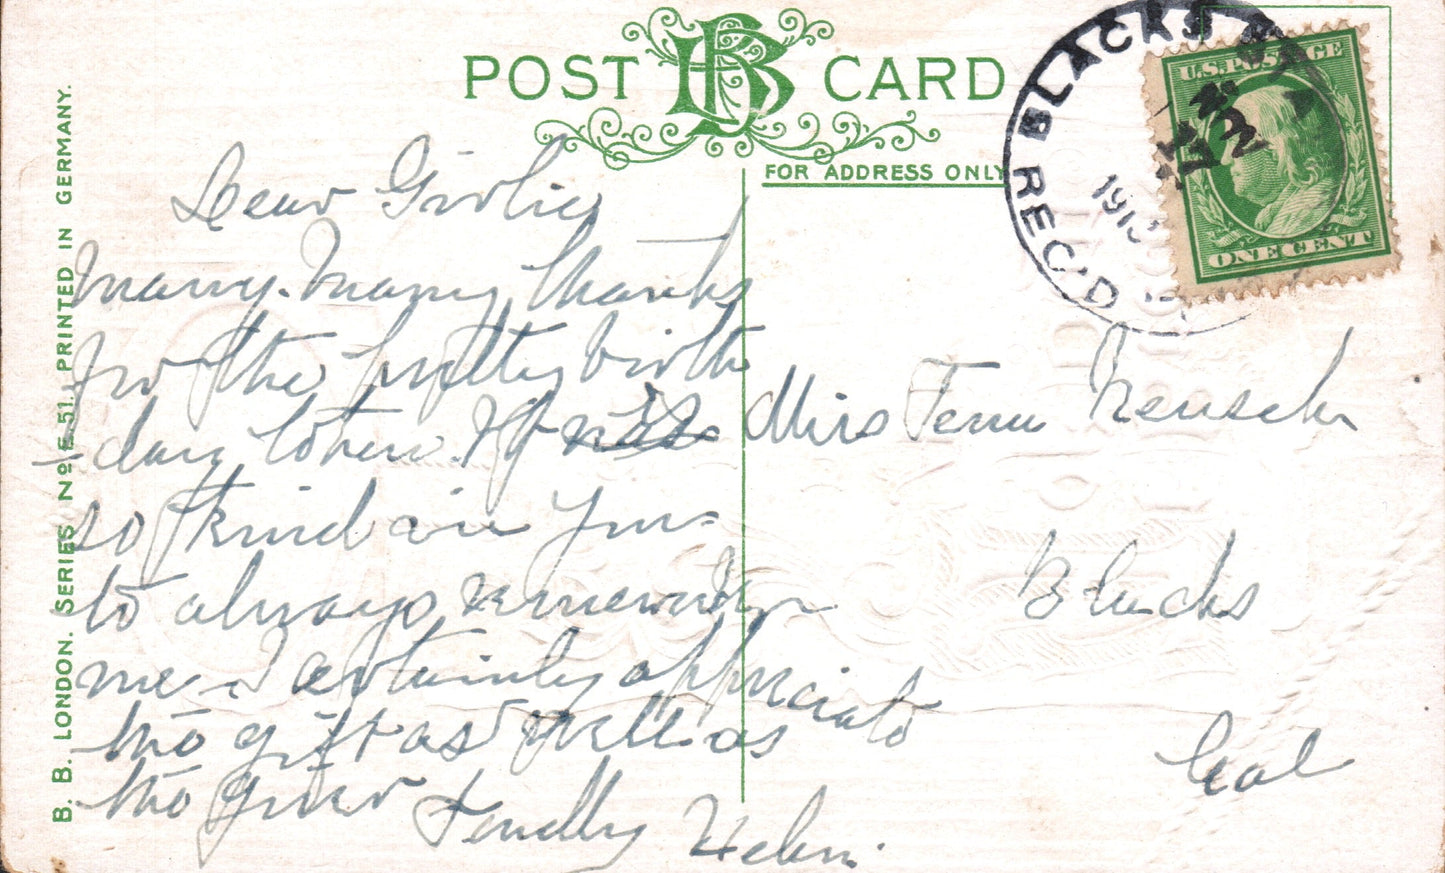 POST BB CARD
FOR ADDRESS ONLY
B. B. LONDON. SERIES No E 51. PRINTED IN GERMANY.
BLACKS STA
REC'D
191
U.S. POSTAGE
ONE CENT
Dear Girlie
Many. Many thanks
for the pretty birth
-day token. It
so kind in you
to always remember
me I certainly appreciate
the gift as well as
the giver
Fondly Helen.
Miss Fern
Blacks
Cal